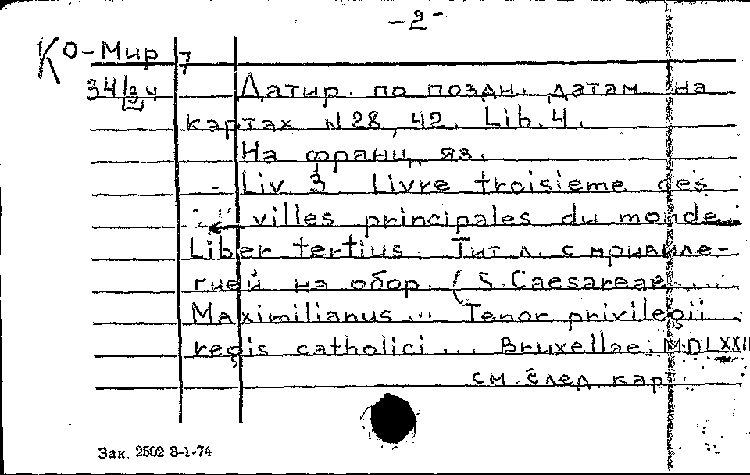 - 2 -
КО-Мир 7
Датир. по поздн. датам на
картах N 28, 42. Lib. 4.
На франц. яз.
- Liv 3 Livre troisieme des
villes principales du monde.
Liber tertius. Тит. л. с привиле-
гией на обор. (S. Caesareae ...
Maximilianus ... Tenor privilegii
regis catholici ... Bruxellae, MDLXXII
см. след. кар
Зак. 2502 8-1-74